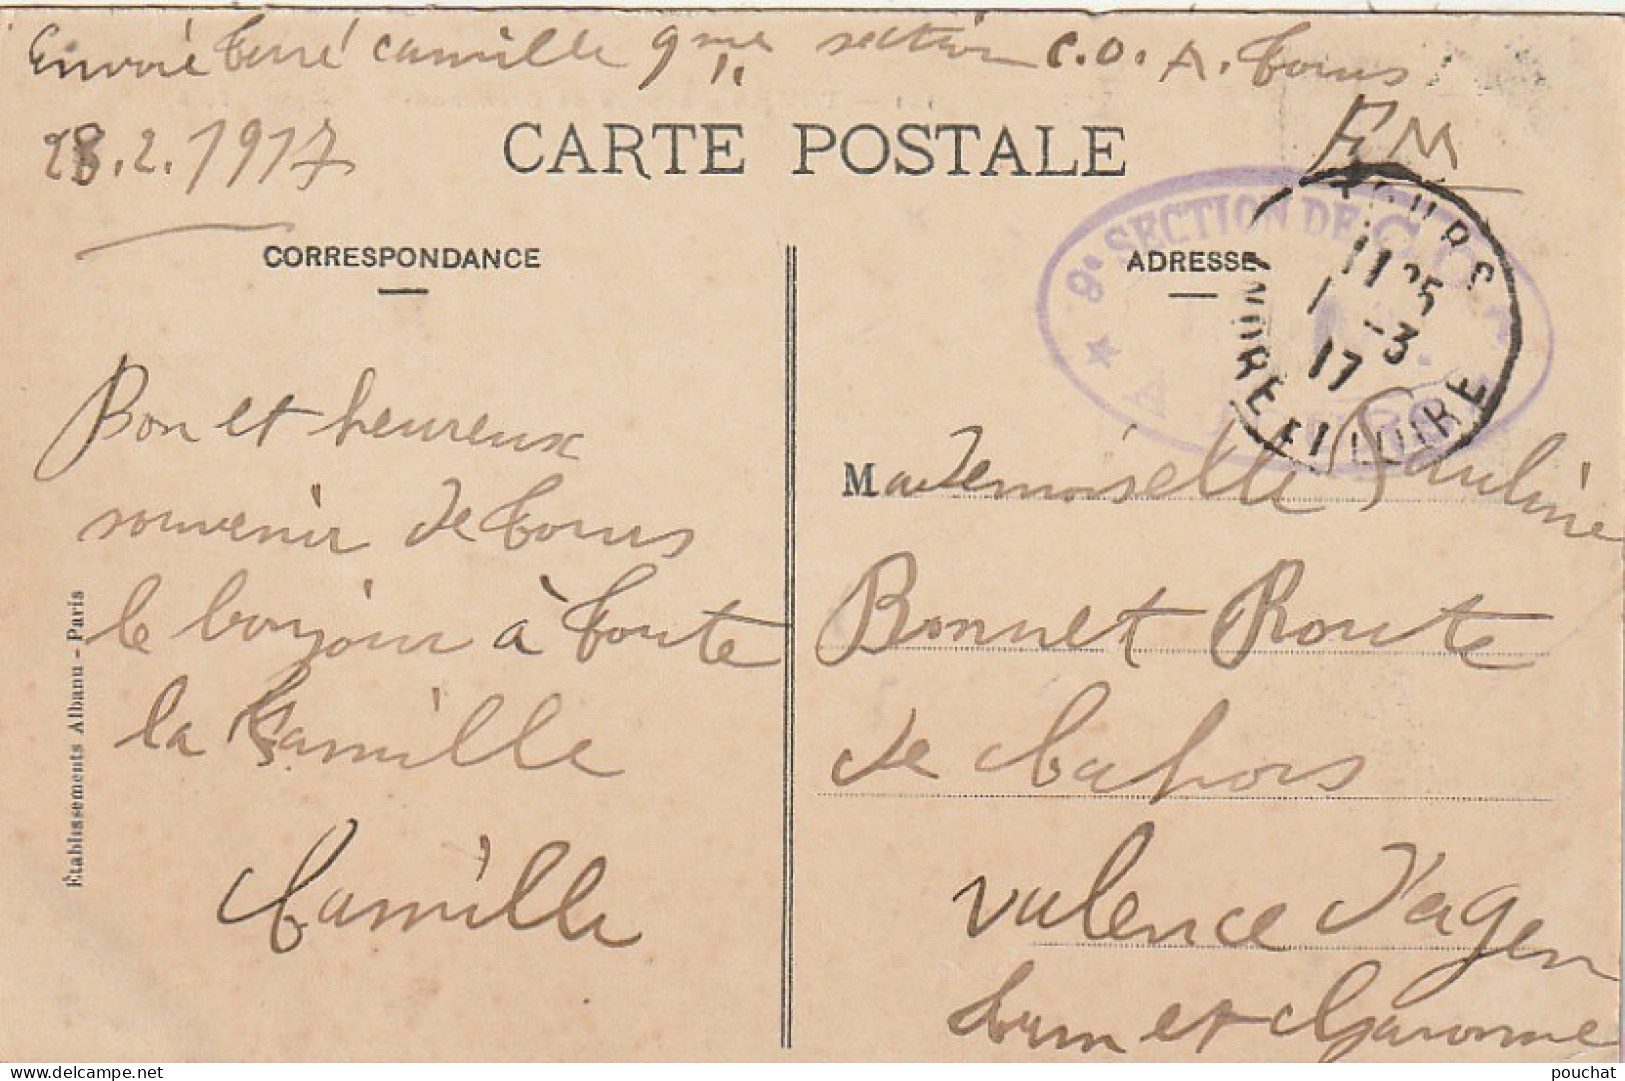 Envoié Terré Camille 9me section C.O.A. Tours
28.2.1917
CARTE POSTALE
FM
CORRESPONDANCE
ADRESSE
9e SECTION DE C.O.
TOURS
11 25
1 -3
17
INDRE ET LOIRE
Bon et heureux
souvenir de Tours
le bonjour à toute
la famille
Camille
Mademoiselle Pauline
Bonnet Route
de Cahors
Valence d'agen
Tarn et Garonne
Établissements Albanu - Paris
pouchat